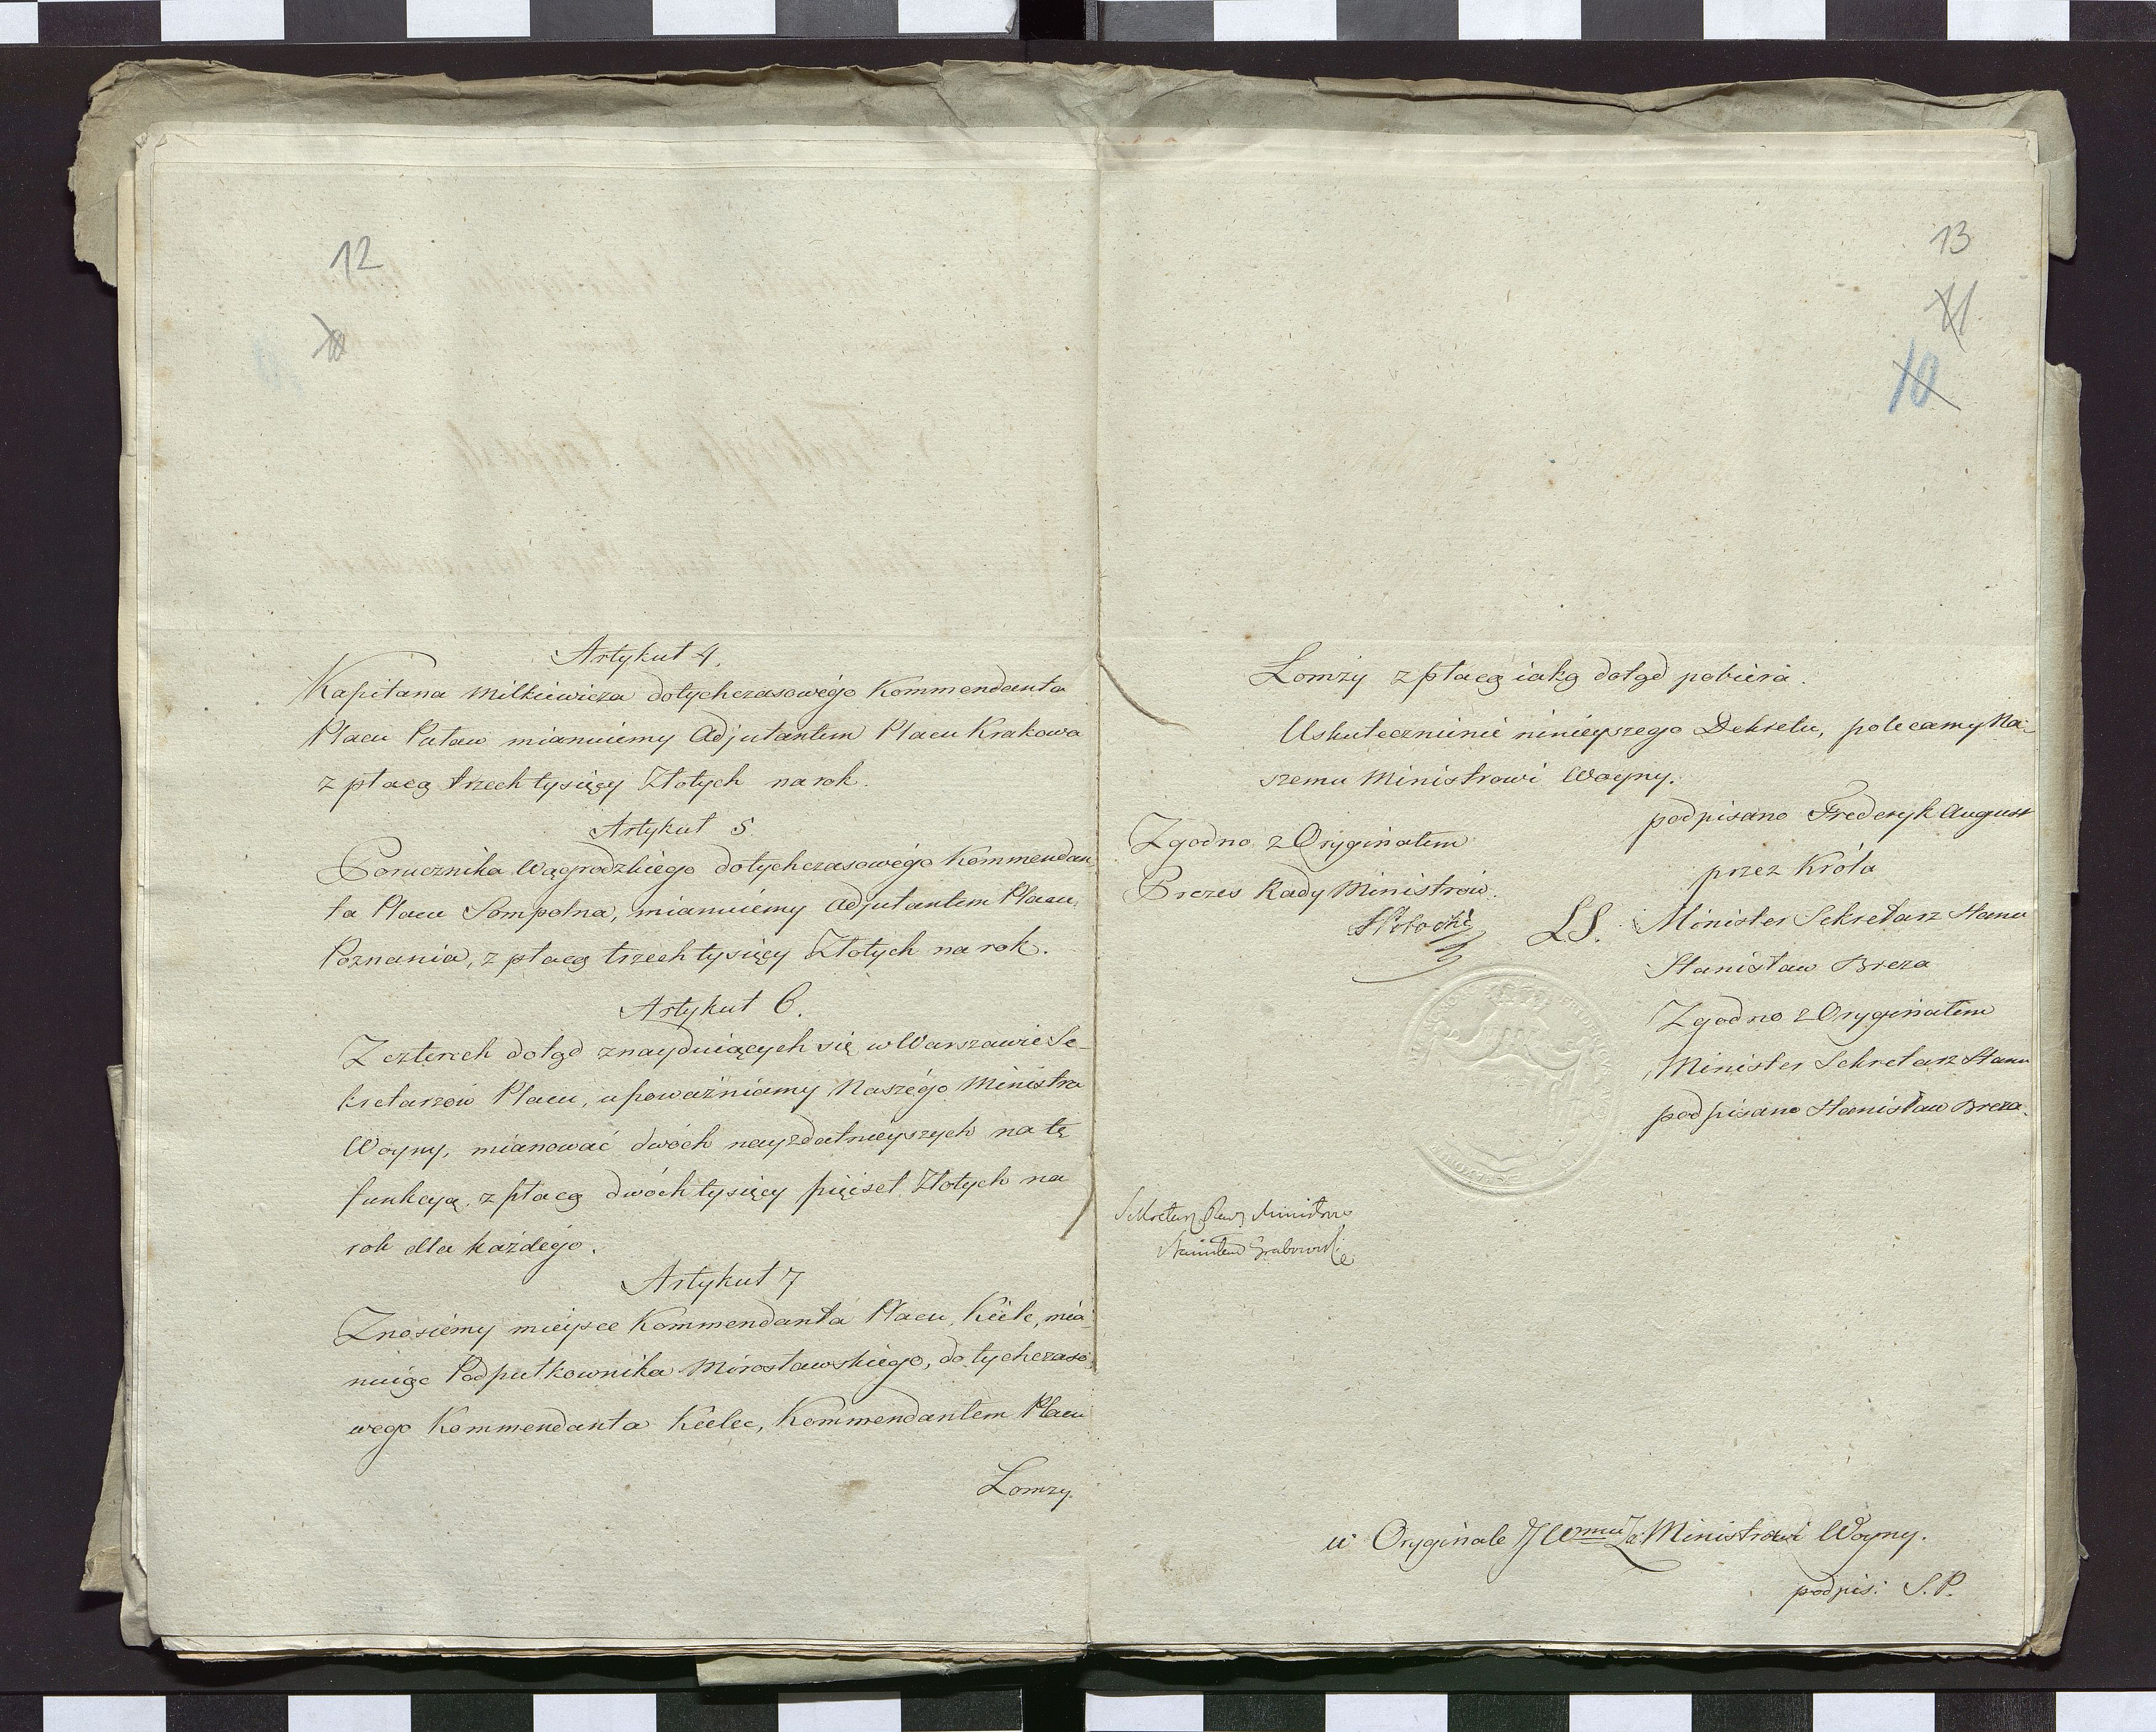 12
10
Artykuł 4.
Kapitana Milkiewicza dotychczasowégo Kommendanta
Placu Puław mianuiemy Adjutantem Placu Krakowa
z płacą trzech tysięcy Złotych na rok.
Artykuł 5
Porucznika Wągrodzkiego dotychczasowégo Kommendan
ta Placu Sompolna, mianuiemy Adjutantem Placu
Poznania, z płacą trzech tysięcy Złotych na rok.
Artykuł 6.
Z czterech dotąd znayduiących się w Warszawie Se-
kretarzow Placu, upoważniamy Naszégo Ministra
Woyny, mianować dwóch nayzdatnieyszych na tę
funkcyą z płacą dwóch tysięcy pięiset Złotych na
rok dla każdégo.
Artykuł 7
Znosiemy mieysce Kommendanta Placu Kielc, mia-
nuiąc Podpułkownika Mirosławskiego, dotychczaso
wego Kommendanta Kielec, Kommendantem Placu
Lomzy.
13
11.
10
Lomży z płacą iaką dotąd pobiera.
Uskutecznienie ninieyszego Dekretu, polecamy Na-
szemu Ministrowi Woyny.
podpisano Frederyk August
przez Króla
LS. Minister Sekretarz Stanu
Stanisław Breza
Zgodno z Oryginałem
Minister Sekretarz Stanu
podpisano Stanisław Breza.
Zgodno z Oryginałem
Prezes Rady Ministrów.
SPotocki
Sekretarz Rady Ministrów
Stanisław Grabowski
u Oryginale JWmu Ministrowi Woyny.
podpis: S.P.